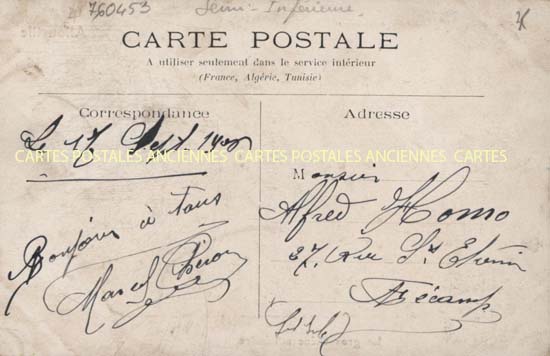 760453
Seine-Inférieure
CARTE POSTALE
A utiliser seulement dans le service intérieur
(France, Algérie, Tunisie)
Correspondance
Le 17 Sept. 190
Bonjour à tous
Marcel
Adresse
Monsieur
Alfred Homo
37, Rue St Etienne
Fécamp
CARTES POSTALES ANCIENNES CARTES POSTALES ANCIENNES CARTES